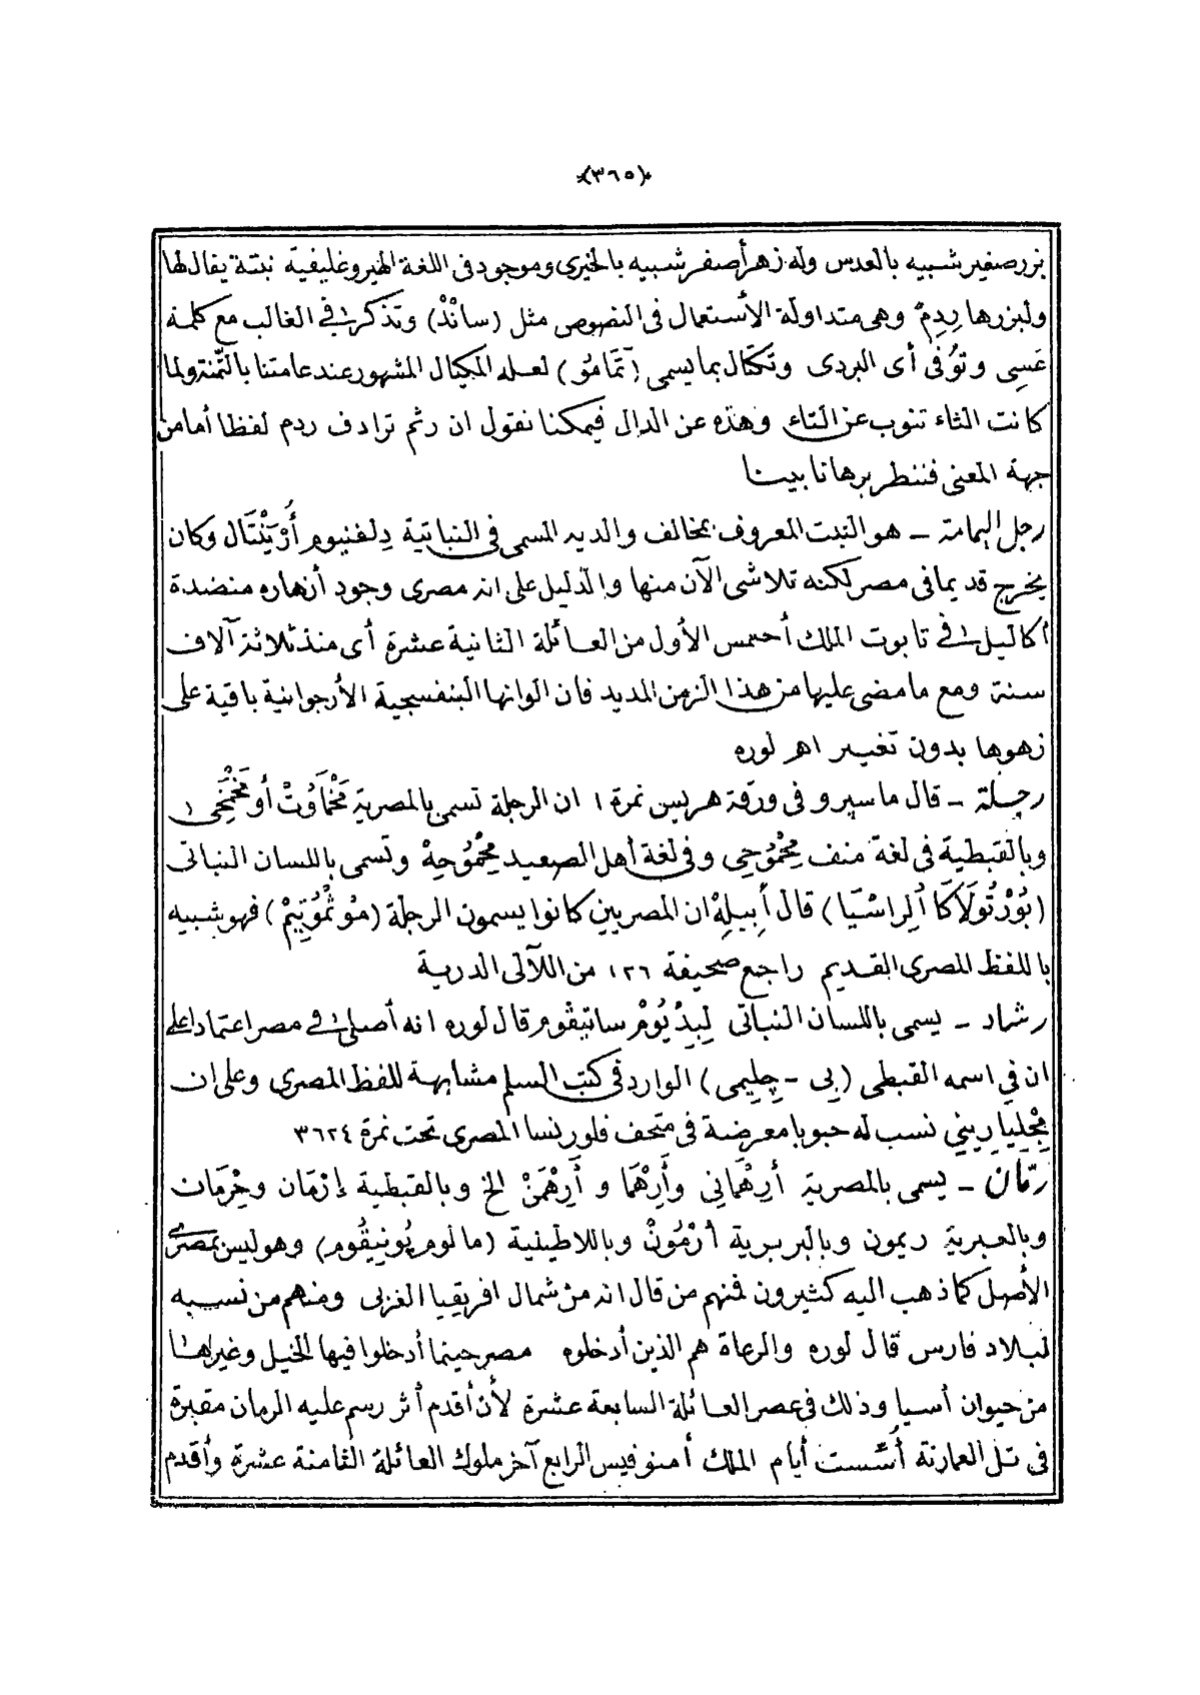 ﴿٣٦٥﴾
بزر صغير شبيه بالعدس وله زهر أصفر شبيه بالخيرى وموجود فى اللغة الهيروغليفية نبتة يقال لها
ولبزرها رِدِمْ وهى متداولة الأستعمال فى النصوص مثل (سانْدْ) وتذكر فى الغالب مع كلمة
عَسِى وتُوفى أى البردى وتكتال بما يسمى (تَمَامُو) لعله المكيال المشهور عند عامتنا بالتّمنة ولما
كانت الثاء تنوب عن التاء وهذه عن الدال فيمكننا نقول ان رثم ترادف ردم لفظا أما من
جهة المعنى فننظر برهانا بينا
رجل اليمامة – هو النبت المعروف بمخالف والديه المسمى فى النباتية دِلفنيوم أُوْرْيَنْتَال وكان
يخرج قديما فى مصر لكنه تلاشى الآن منها والدليل على انه مصرى وجود أزهاره منضدة
أكاليل فى تابوت الملك أحمس الأول من العائلة الثانية عشرة أى منذ ثلاثة آلاف
سنة ومع ما مضى عليها من هذا الزمن المديد فان الوانها البنفسجية الأرجوانية باقية على
زهوها بدون تغيير اهـ لوره
رجلة – قال ماسبرو فى ورقة هريس نمرة ١ ان الرجلة تسمى بالمصرية مَخْمَاوُتْ أو مَخْمَخَى
وبالقبطية فى لغة منف مِحْمُوحِى وفى لغة أهل الصعيد مِحْمُوحِهْ وتسمى باللسان النباتى
(بُوْرْتُولَاكَا أُلِراسْيَا) قال أَبِيلِهْ ان المصريين كانوا يسمون الرجلة (مُوثْمُوتِيمْ) فهو شبيه
باللفظ المصرى القديم راجع صحيفة ١٢٦ من اللآلى الدرية
رشاد – يسمى باللسان النباتى لِبِدْيُومْ ساتيڤوم قال لوره انه أصلى فى مصر اعتمادا على
ان فى اسمه القبطى (بِى – چلِيمى) الوارد فى كتب السلم مشابهة للفظ المصرى وعلى ان
مِجْلِيارِينِي نسب له حبوبا معرضة فى متحف فلورنسا المصرى تحت نمرة ٣٦٢٤
رمّان – يسمى بالمصرية أَرِهْمَانِي وأَرِهْمَا و أَرِهْمَنْ الخ وبالقبطية إِرْمَان وحِرْمَات
وبالعبرية ريمون وبالبربرية أَرْمُونْ وباللاطينية (مالوم پُونيقُوم) وهو ليس بمصرى
الأصل كما ذهب اليه كثيرون فمنهم من قال انه من شمال افريقيا الغربى ومنهم من نسبه
لبلاد فارس قال لوره والرعاة هم الذين أدخلوه مصر حينما أدخلوا فيها الخيل وغيرها
من حيوان أسيا وذلك فى عصر العائلة السابعة عشرة لأن أقدم أثر رسم عليه الرمان مقبرة
فى تل العمارنة أُسّست أيام الملك أمنوفيس الرابع آخر ملوك العائلة الثامنة عشرة وأقدم